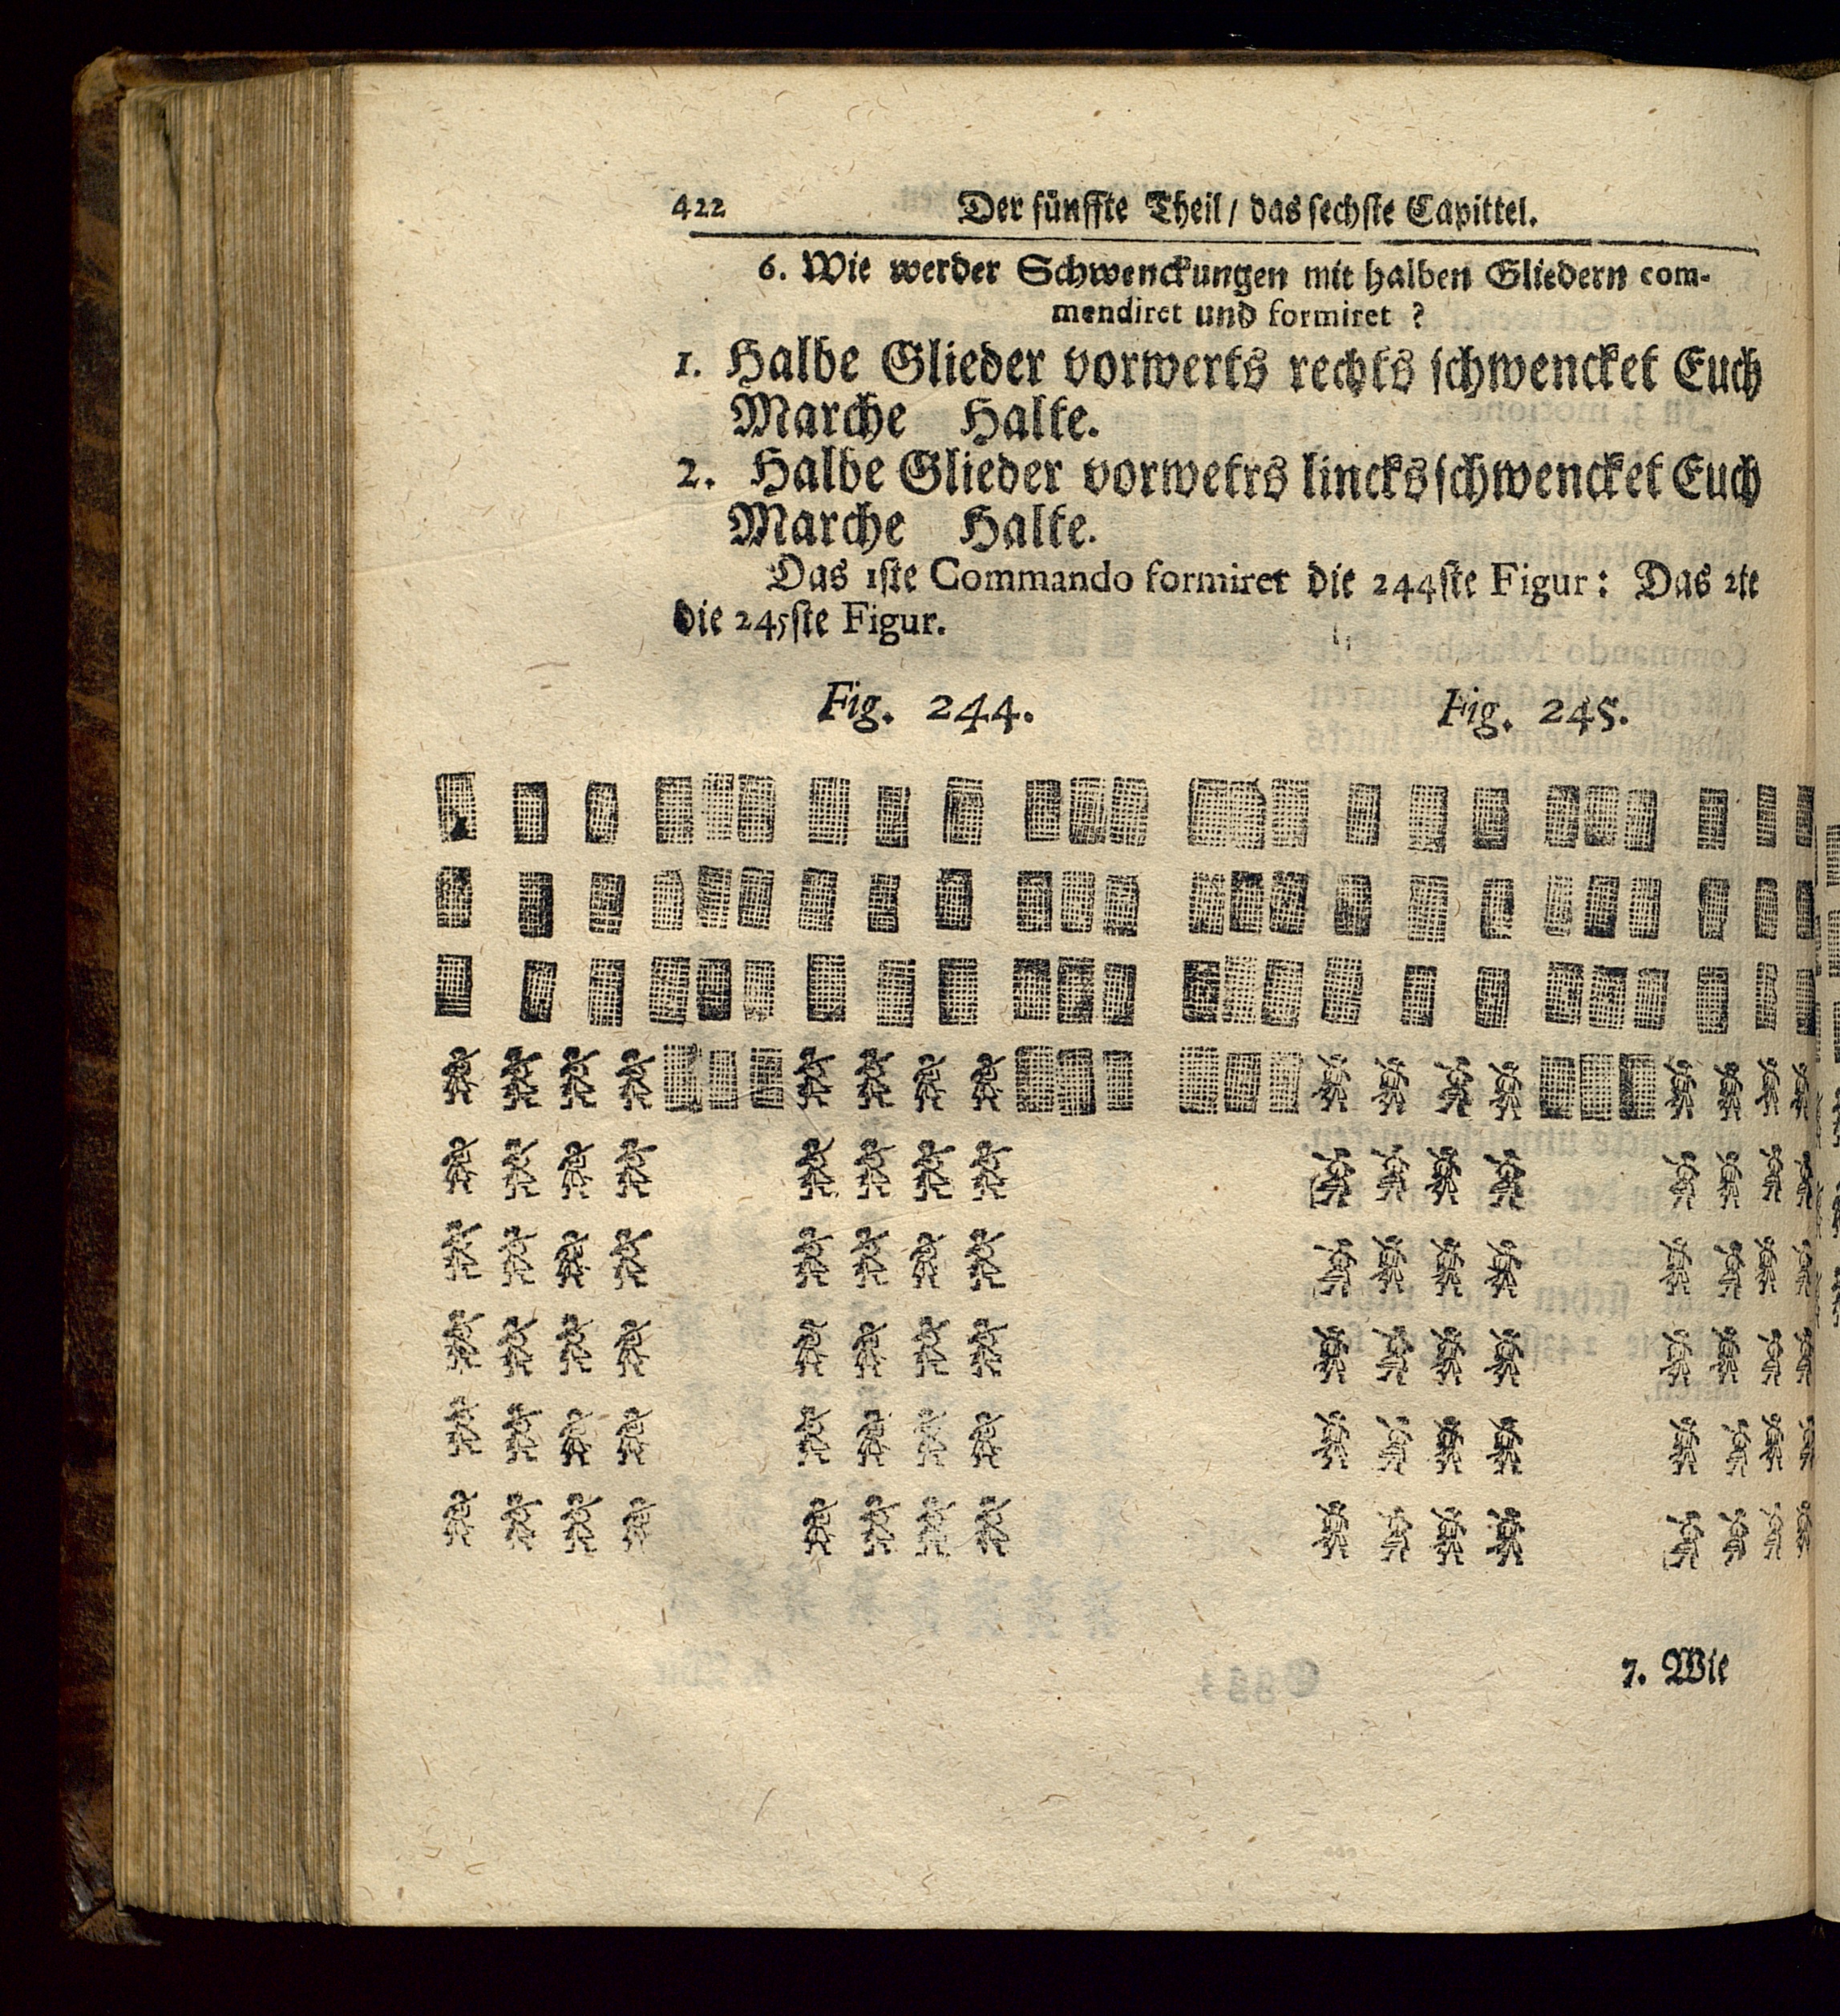 422 Der fünffte Theil / das sechste Capittel.
6. Wie werder Schwenckungen mit halben Gliedern com-
mendiret und formiret ?
1. Halbe Glieder vorwerts rechts schwencket Euch
Marche Halte.
2. Halbe Glieder vorwetrs lincks schwencket Euch
Marche Halte.
Das 1ste Commando formiret die 244ste Figur: Das 2te
die 245ste Figur.
Fig. 244. Fig. 245.
7. Wie